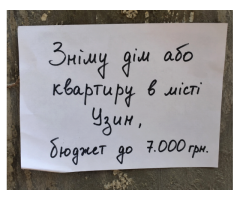 Зніму дім або
квартиру в місті
Узин,
бюджет до 7.000 грн.